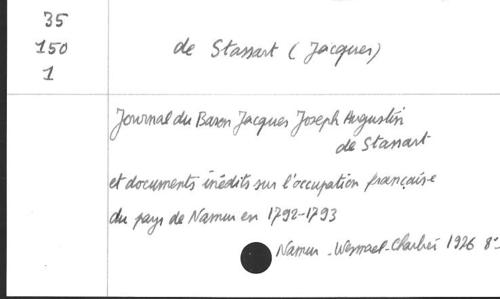 35
150
1
de Stassart (Jacques)
Journal du Baron Jacques Joseph Augustin
de Stassart
et documents inédits sur l'occupation française
du pays de Namur en 1792-1793
Namur - Wesmael-Charlier 1926 8°